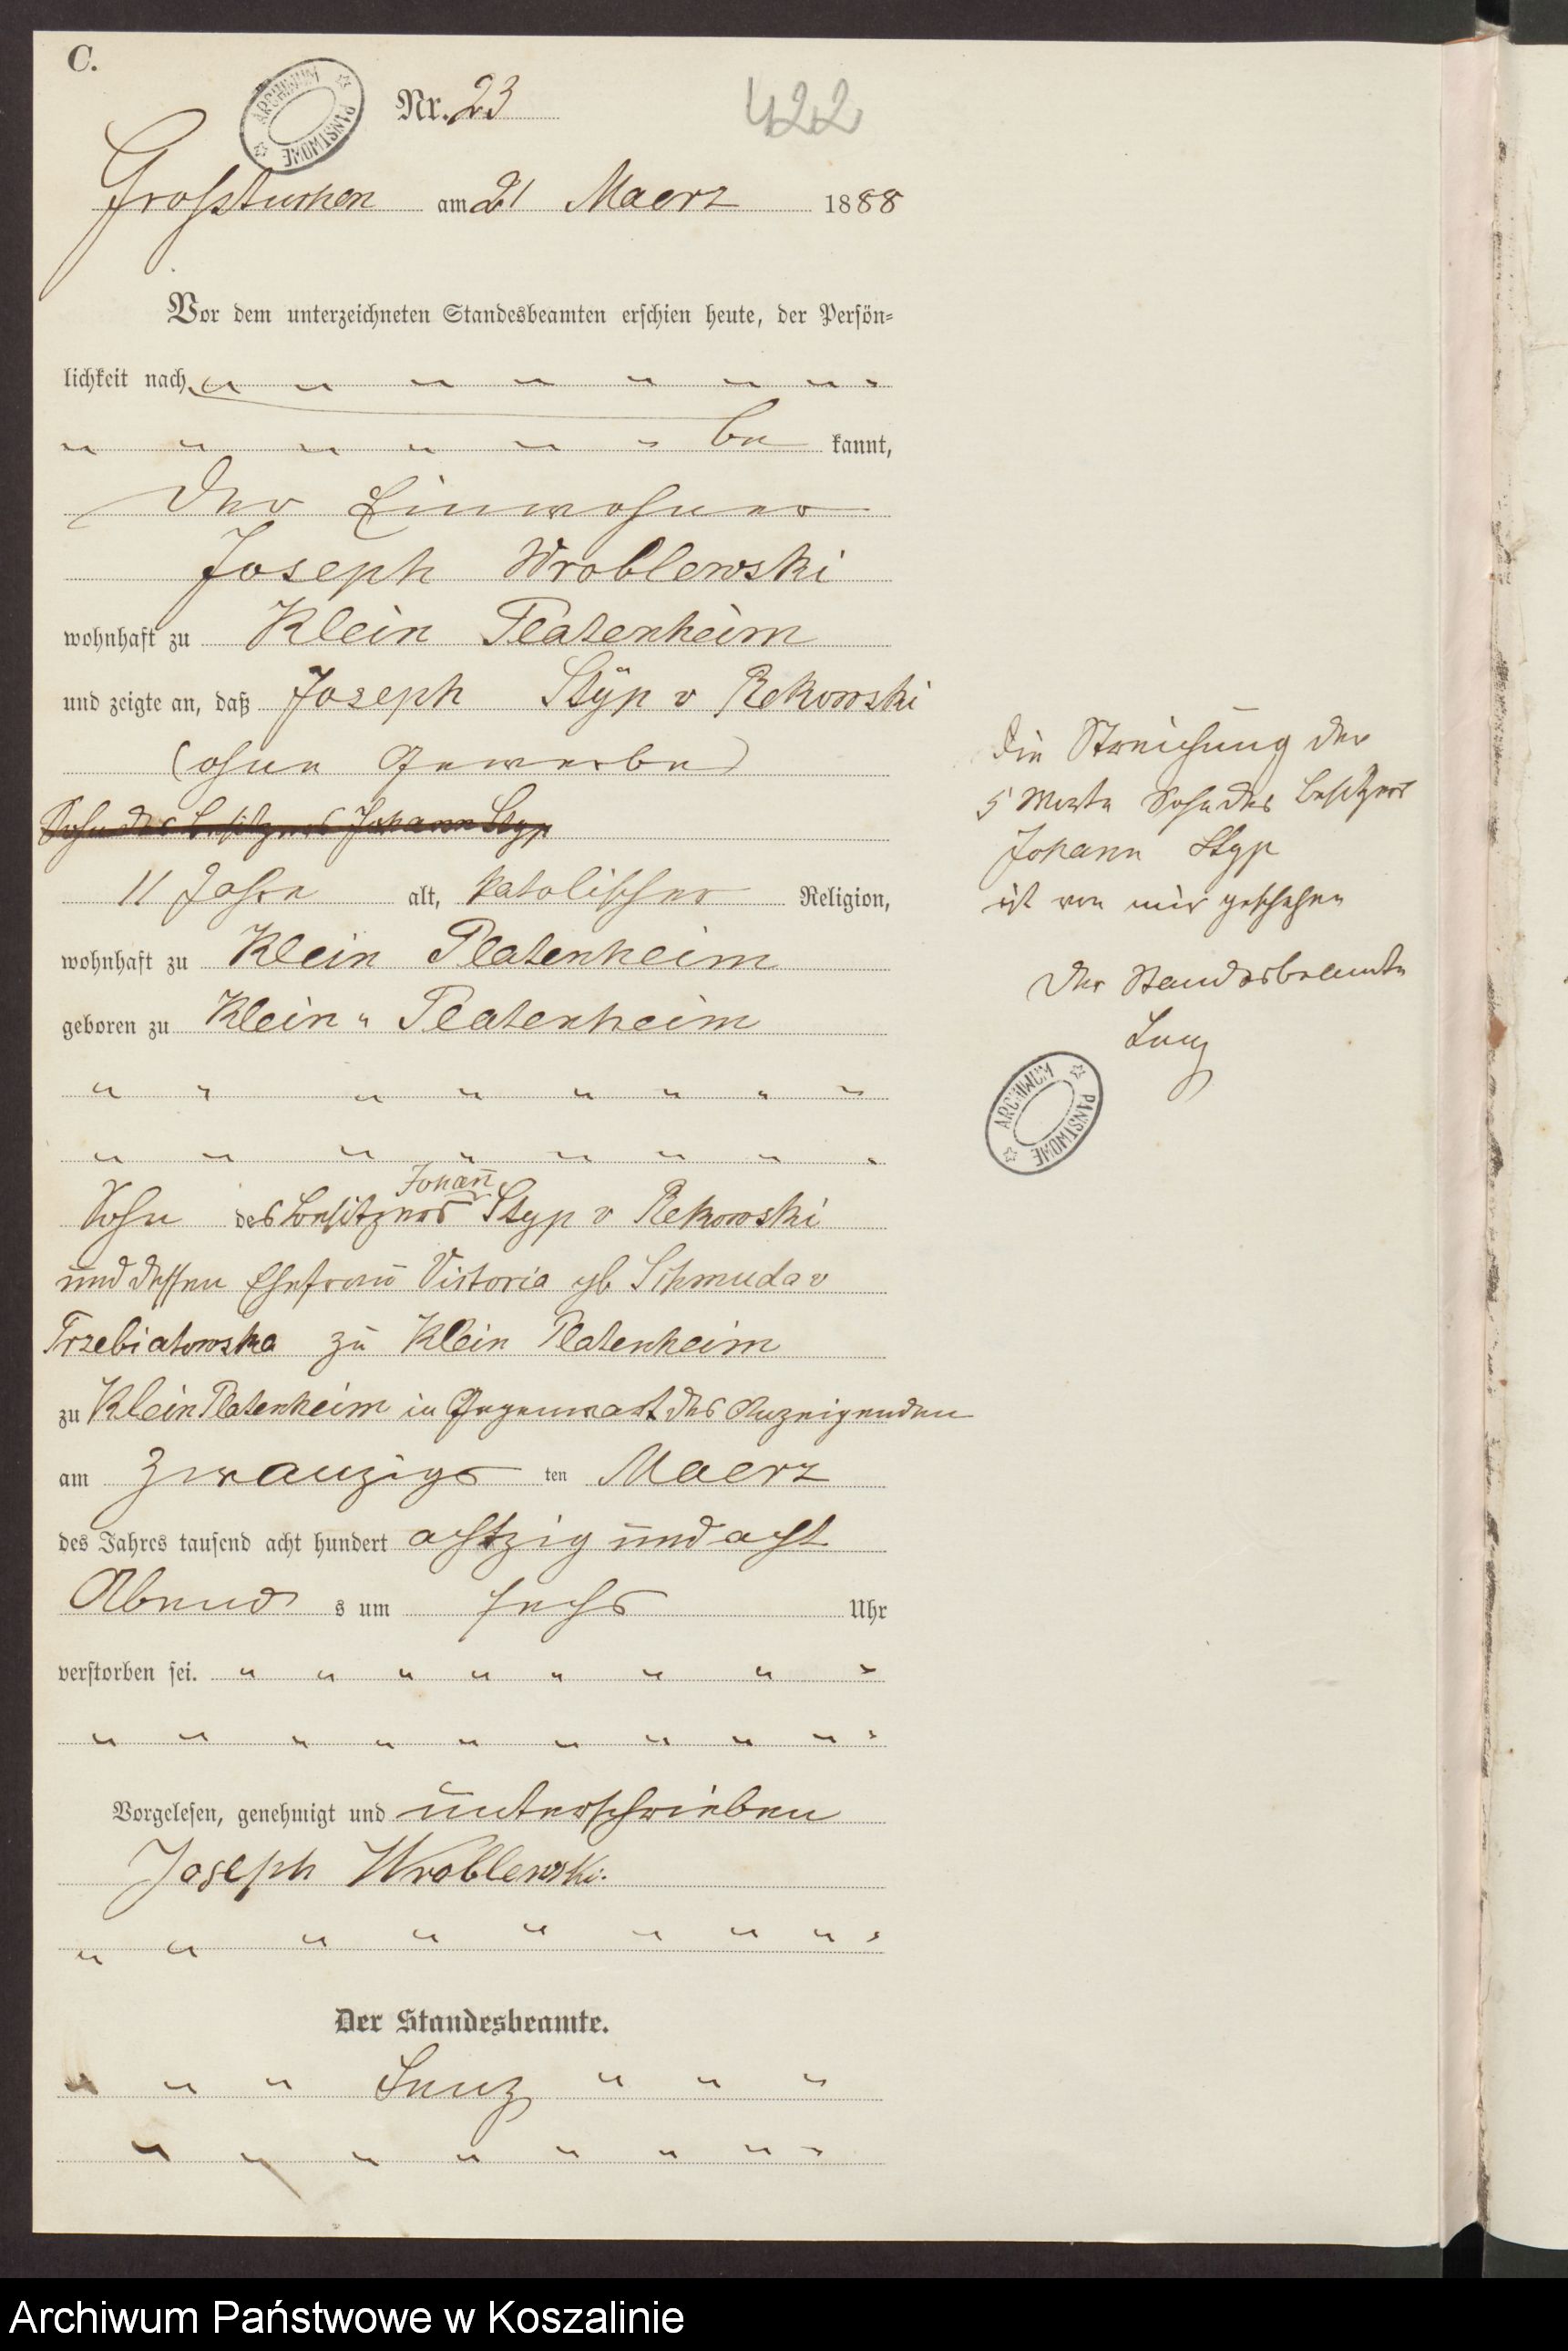 C.
ARCHIWUM PAŃSTWOWE
Nr. 23
422
Grosstuchen am 21 Maerz 1888
Vor dem unterzeichneten Standesbeamten erschien heute, der Persön-
lichkeit nach
be kannt,
der Einwohner
Joseph Wroblewski
wohnhaft zu Klein Platenheim
und zeigte an, daß Joseph Styp v Rekowski
(ohne Gewerbe)
Sohn des Besitzers Johann Styp
11 Jahre alt, katolischer Religion,
wohnhaft zu Klein Platenheim
geboren zu Klein Platenheim
Johann
Sohn des Besitzers Styp v Rekowski
und dessen Ehefrau Victoria gb Schmuda v
Trzebiatowska zu Klein Platenheim
zu Klein Platenheim in Gegenwart des Anzeigenden
am zwanzigs ten Maerz
des Jahres tausend acht hundert achtzig und acht
Abend s um sechs Uhr
verstorben sei.
Vorgelesen, genehmigt und unterschrieben
Joseph Wroblewski.
Der Standesbeamte.
Lenz
die Streichung der
5 Worte Sohn des Besitzers
Johann Styp
ist von mir geschehen
Der Standesbeamte
Lenz
ARCHIWUM PAŃSTWOWE
Archiwum Państwowe w Koszalinie